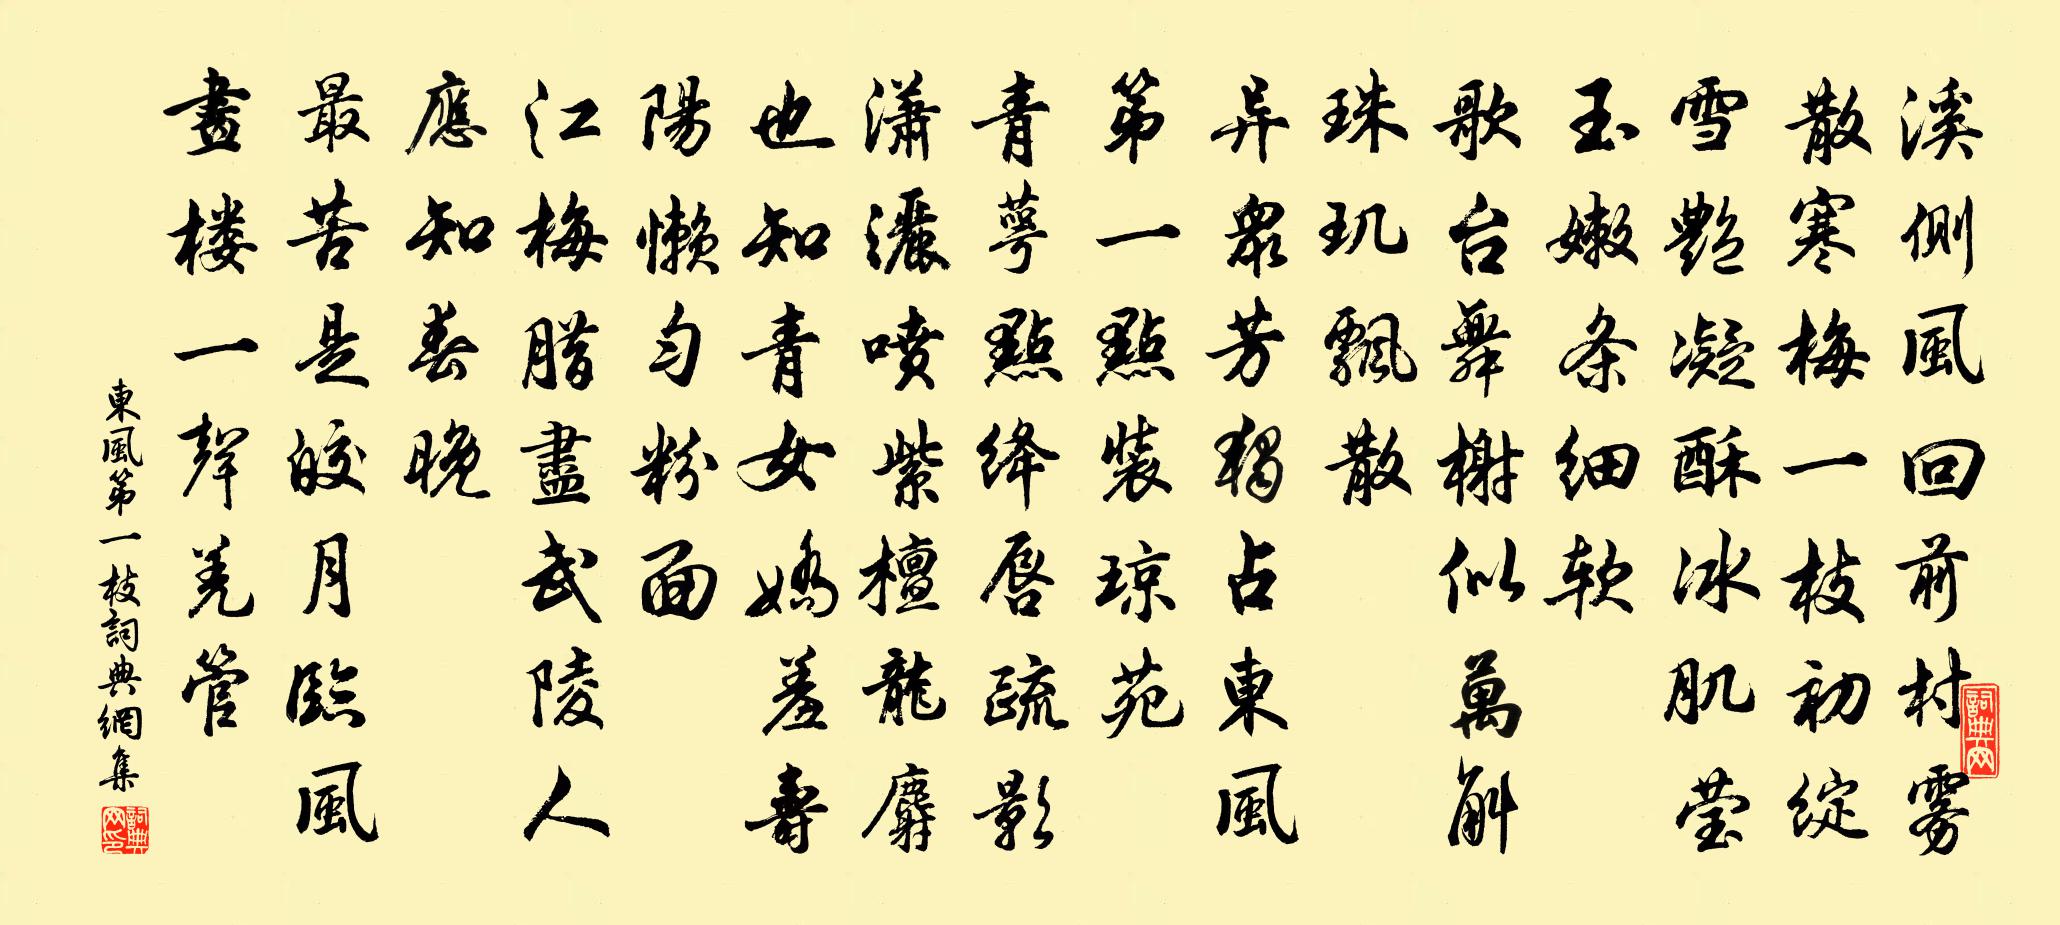 溪側風回前村雾
散寒梅一枝初綻
雪艷凝酥冰肌莹
玉嫩条细软
歌台舞榭似萬斛
珠玑飄散
异眾芳独占東風
第一點裝琼苑
青萼點绛唇疏影
潇灑喷紫檀龍麝
也知青女嬌羞壽
陽懒匀粉面
江梅腊盡武陵人
應知春晚
最苦是皎月臨風
畫楼一聲羌管
東風第一枝詞典網集
詞典网
詞典网印